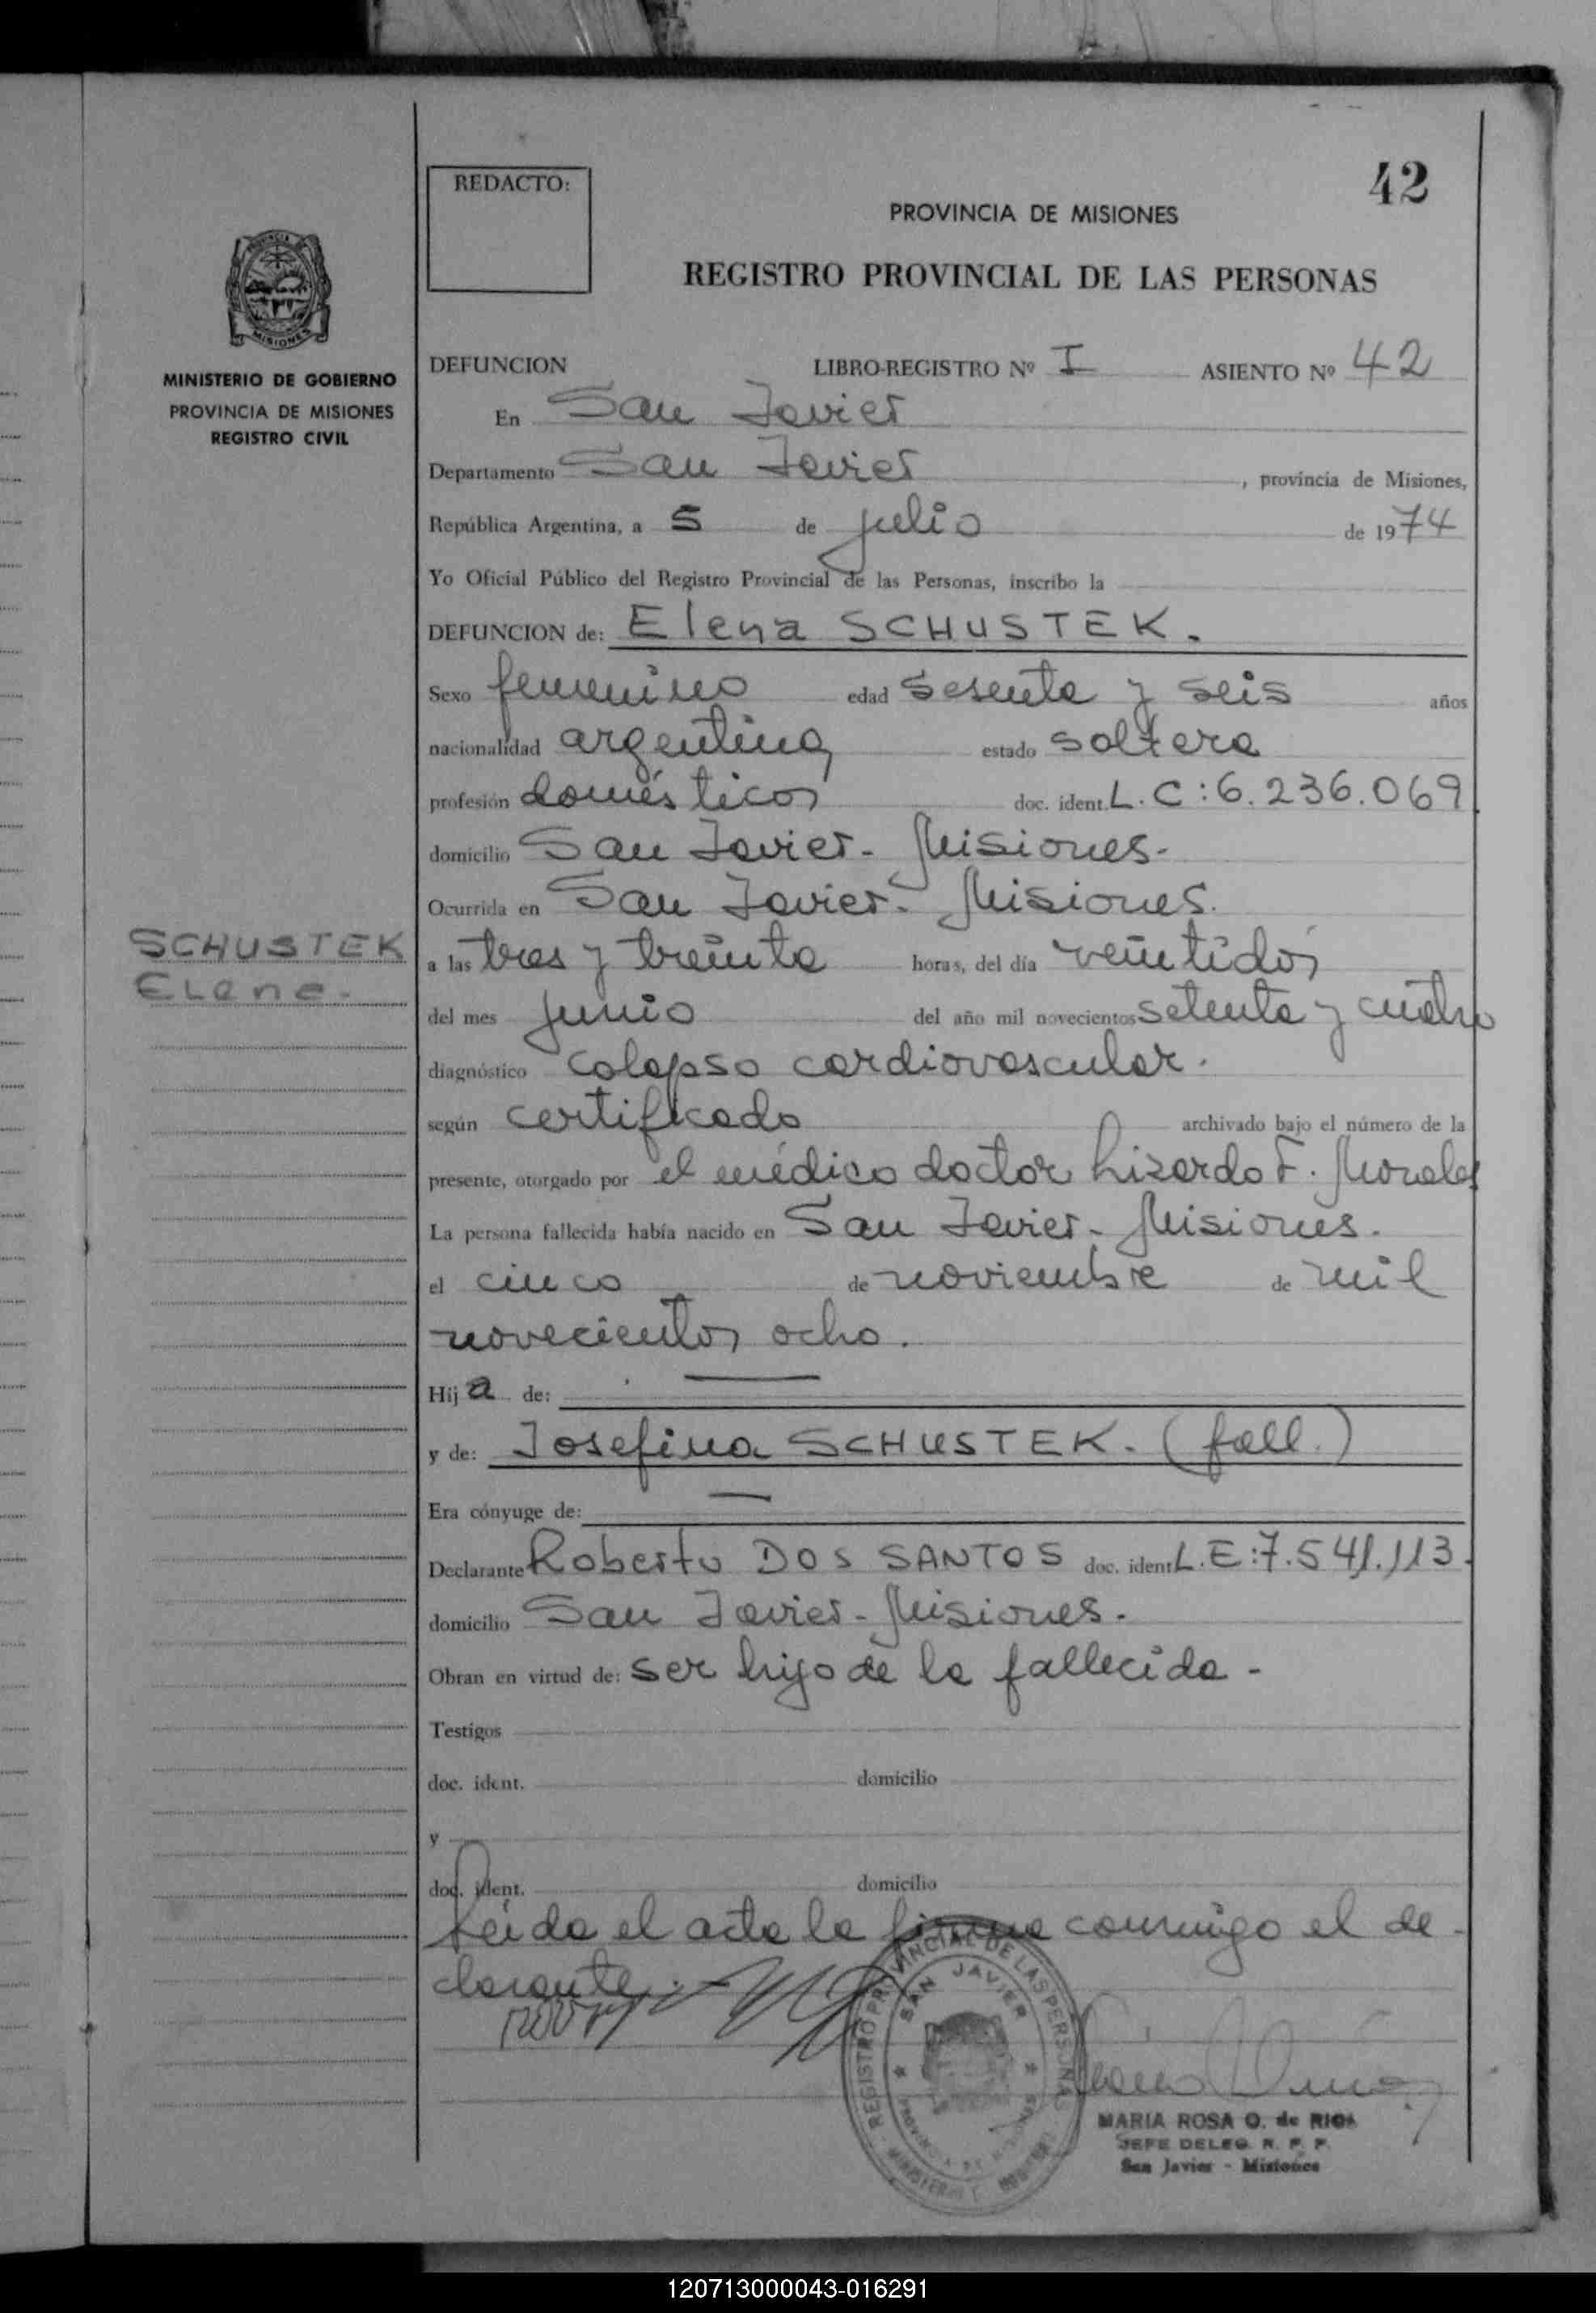 42
REDACTO:
PROVINCIA DE MISIONES
REGISTRO PROVINCIAL DE LAS PERSONAS
MISIONES
MINISTERIO DE GOBIERNO
PROVINCIA DE MISIONES
REGISTRO CIVIL
DEFUNCION LIBRO-REGISTRO Nº I ASIENTO Nº 42
En San Javier
Departamento San Javier, provincia de Misiones,
República Argentina, a 5 de julio de 1974
Yo Oficial Público del Registro Provincial de las Personas, inscribo la
DEFUNCION de: Elena SCHUSTEK.
Sexo femenino edad sesenta y seis años
nacionalidad argentina estado soltera
profesión domésticos doc. ident. L.C:6.236.069
domicilio San Javier- Misiones-
Ocurrida en San Javier- Misiones.
SCHUSTEK
Elena-
a las tres y treinta horas, del día veintidós
del mes junio del año mil novecientos setenta y cuatro
diagnóstico colapso cardiovascular.
según certificado archivado bajo el número de la
presente, otorgado por el médico doctor Lizardo F. Morales
La persona fallecida había nacido en San Javier- Misiones.
el cinco de noviembre de mil
novecientos ocho.
Hija de: —
y de: Josefina SCHUSTEK. (fall.)
Era cónyuge de: —
Declarante Roberto DOS SANTOS doc. ident. L.E:7.541.113.
domicilio San Javier- Misiones.
Obran en virtud de: ser hijo de la fallecida-
Testigos
doc. ident. domicilio
y
doc. ident. domicilio
Leída el acta la firma conmigo el de-
clarante.-
REGISTRO PROVINCIAL DE LAS PERSONAS
SAN JAVIER
MARIA ROSA O. de RIOS
JEFE DELEG. R. P. P.
San Javier - Misiones
120713000043-016291